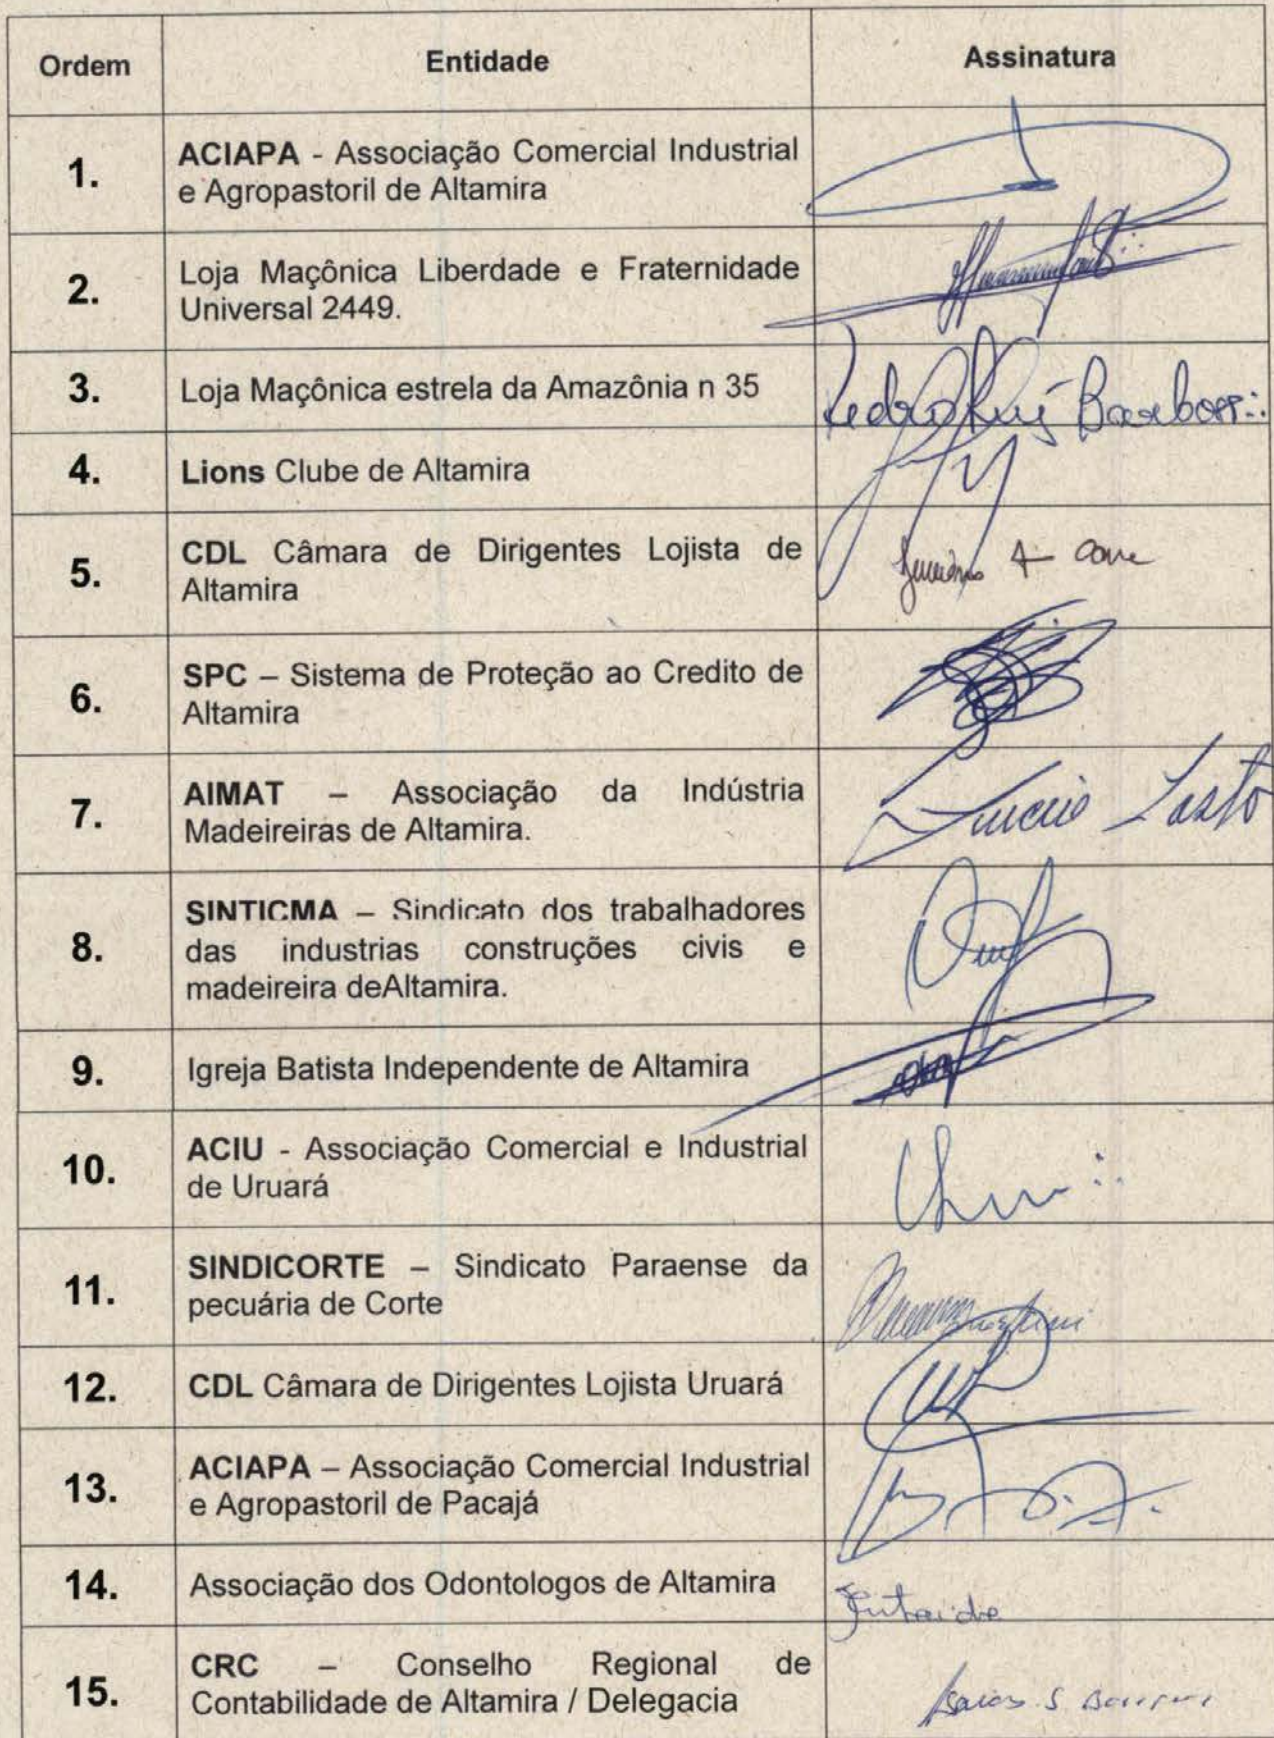 Ordem Entidade Assinatura
1. ACIAPA - Associação Comercial Industrial
e Agropastoril de Altamira
2. Loja Maçônica Liberdade e Fraternidade
Universal 2449.
3. Loja Maçônica estrela da Amazônia n 35
4. Lions Clube de Altamira
5. CDL Câmara de Dirigentes Lojista de
Altamira
6. SPC – Sistema de Proteção ao Credito de
Altamira
7. AIMAT – Associação da Indústria
Madeireiras de Altamira.
8. SINTICMA – Sindicato dos trabalhadores
das industrias construções civis e
madeireira deAltamira.
9. Igreja Batista Independente de Altamira
10. ACIU - Associação Comercial e Industrial
de Uruará
11. SINDICORTE – Sindicato Paraense da
pecuária de Corte
12. CDL Câmara de Dirigentes Lojista Uruará
13. ACIAPA – Associação Comercial Industrial
e Agropastoril de Pacajá
14. Associação dos Odontologos de Altamira
15. CRC – Conselho Regional de
Contabilidade de Altamira / Delegacia